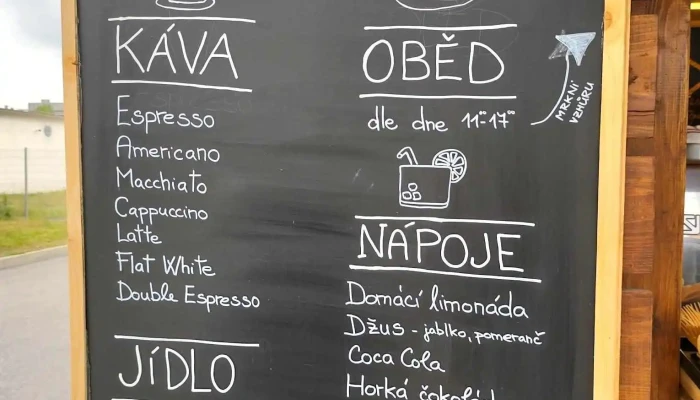 KÁVA
Espresso
Americano
Macchiato
Cappuccino
Latte
Flat White
Double Espresso
JÍDLO
OBĚD
dle dne 11⁰⁰-17⁰⁰
MRKNI
VZHŮRU
NÁPOJE
Domácí limonáda
Džus - jablko, pomeranč
Coca Cola
Horká